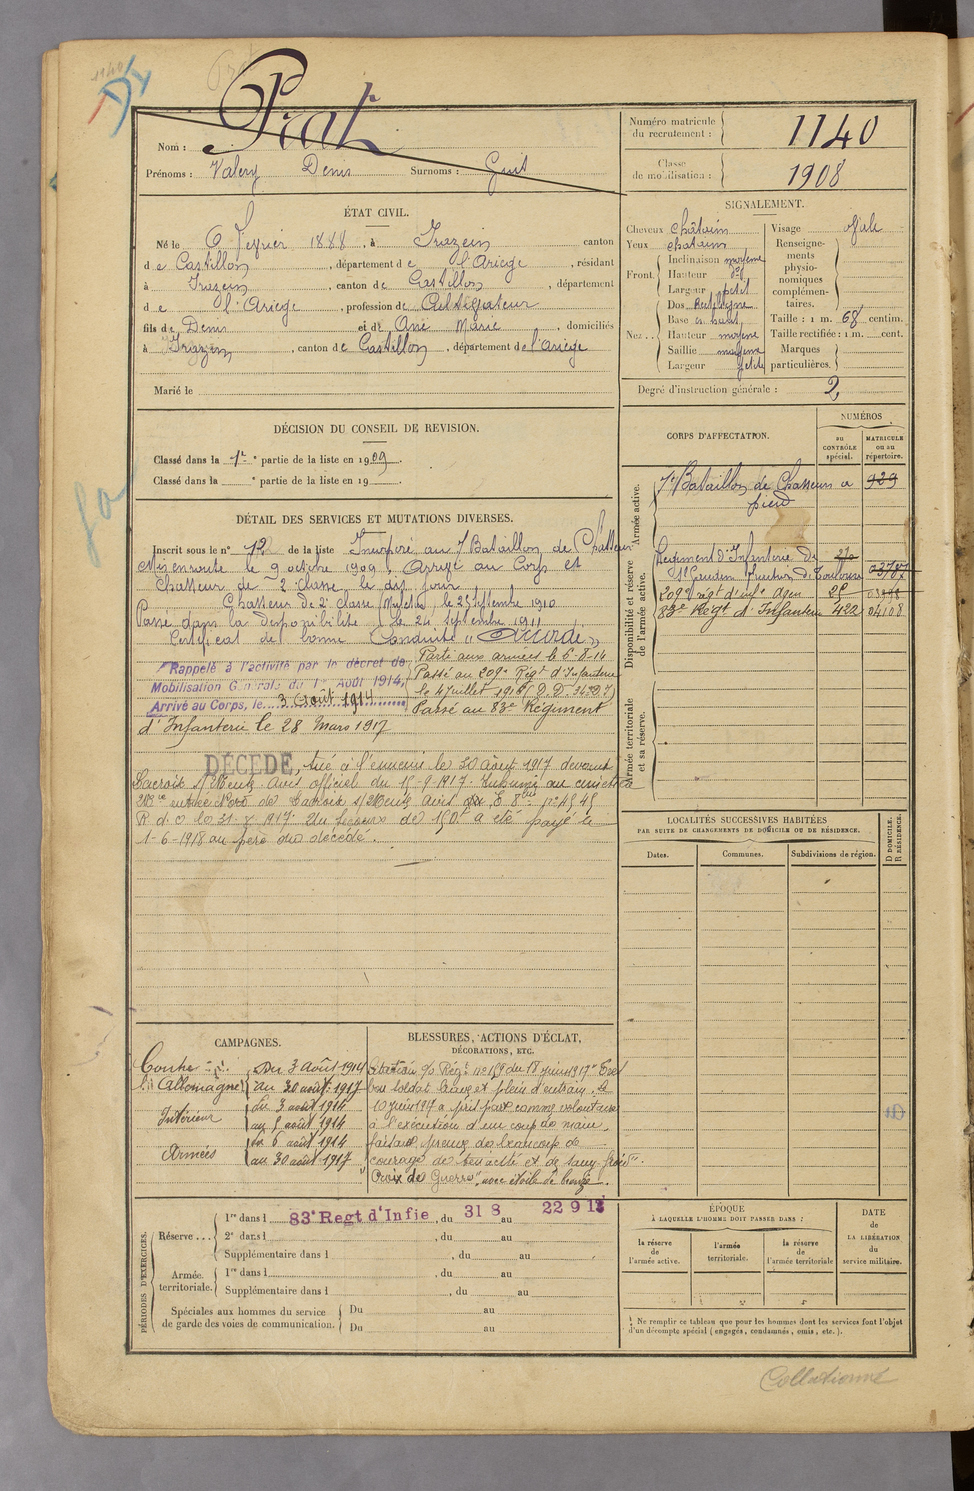 1140
Nom : Prat
Prénoms : Valery Denis Surnoms : Guit
Numéro matricule du recrutement : 1140
Classe de mobilisation : 1908
ÉTAT CIVIL.
Né le 6 février 1888, à Irazein canton
de Castillon, département de l'Ariège, résidant
à Irazein, canton de Castillon, département
de l'Ariège, profession de Cultivateur
fils de Denis et de Ané Marie, domiciliés
à Irazein, canton de Castillon, département de l'Ariège
Marié le
SIGNALEMENT.
Cheveux châtain
Yeux châtain
Front. Inclinaison moyenne
Hauteur dº
Largeur petit
Nez.. Dos Rectiligne
Base haut
Hauteur moyenne
Saillie moyenne
Largeur petite
Visage ovale
Renseignements physionomiques complémentaires.
Taille : 1 m. 68 centim.
Taille rectifiée : 1 m. cent.
Marques particulières.
Degré d'instruction générale : 2
DÉCISION DU CONSEIL DE REVISION.
Classé dans la 1re partie de la liste en 1909.
Classé dans la e partie de la liste en 19 .
DÉTAIL DES SERVICES ET MUTATIONS DIVERSES.
Inscrit sous le n° 12 de la liste Incorporé au 7 Bataillon de Chasseur
Mis en route le 9 octobre 1909, Arrivé au Corps et
Chasseur de 2e classe le dit jour
Chasseur de 2e classe le 25 septembre 1910
Passé dans la disponibilité le 24 septembre 1911
Certificat de bonne Conduite "Accordé"
Rappelé à l'activité par le décret de
Mobilisation Générale du 1er Août 1914,
Arrivé au Corps, le 3 Août 1914
Parti aux armées le 6-8-14
Passé au 209e Régt d'Infanterie
le 4 juillet 1916
Passé au 83e Régiment
d'Infanterie le 28 Mars 1917
DÉCÉDÉ, tué à l'ennemi le 30 août 1917 devant
Lacroix s/Meuse avis officiel du 15-9-1917. Inhumé au cimetière
entrée Nord de Lacroix s/Meuse avis
R d o le 31-7-1917. Un secours de 150f a été payé le
1-6-1918 au père du décédé.
CORPS D'AFFECTATION.
NUMÉROS
au CONTRÔLE spécial.
MATRICULE ou au répertoire.
Armée active.
7e Bataillon de Chasseurs à 929
pied
Disponibilité et réserve de l'armée active.
Régiment d'Infanterie de
St Gaudens fraction de Toulouse
209e régt d'infie Agen
83e Régt d'Infanterie 422 04108
Armée territoriale et sa réserve.
LOCALITÉS SUCCESSIVES HABITÉES
PAR SUITE DE CHANGEMENTS DE DOMICILE OU DE RÉSIDENCE.
Dates. Communes. Subdivisions de région.
D DOMICILE. R RÉSIDENCE.
CAMPAGNES.
Contre l'Allemagne
Du 3 Août 1914
au 30 août 1917
Intérieur
du 3 août 1914
au 5 août 1914
Armées
du 6 août 1914
au 30 août 1917
BLESSURES, ACTIONS D'ÉCLAT,
DÉCORATIONS, ETC.
Citation o/ Régt nº 159 du 18 juin 1917 "Très
bon soldat brave et plein d'entrain. Le
10 juin 1917 a pris part comme volontaire
à l'exécution d'un coup de main,
faisant preuve de beaucoup de
courage de tenacité et de sang-froid".
Croix de Guerre, avec étoile de bronze.
PÉRIODES D'EXERCICES.
Réserve... 1re dans l 83e Regt d'Infie, du 31 8 au 22 9 13
2e dans l , du au
Supplémentaire dans l , du au
Armée territoriale. 1re dans l , du au
Supplémentaire dans l , du au
Spéciales aux hommes du service de garde des voies de communication. Du au
Du au
ÉPOQUE
À LAQUELLE L'HOMME DOIT PASSER DANS :
la réserve de l'armée active.
l'armée territoriale.
la réserve de l'armée territoriale
DATE de LA LIBÉRATION du service militaire.
Ne remplir ce tableau que pour les hommes dont les services font l'objet
d'un décompte spécial (engagés, condamnés, omis, etc.).
Collationné